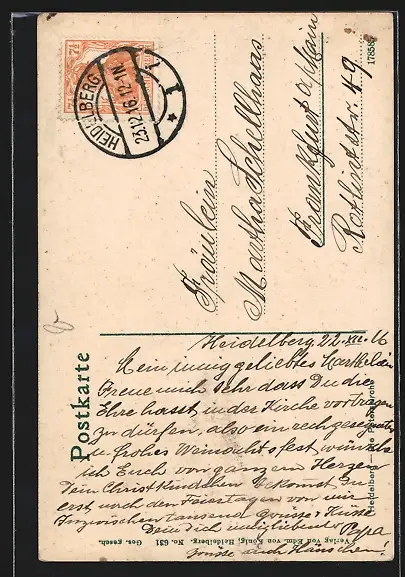 7½
HEIDELBERG
23.12.16. 12-1N
1
Fräulein
Martha Schellhaas
Frankfurt a/Main
Rotlintstr. 49
178585
Postkarte
Heidelberg 22.XII.16
Mein innig geliebtes Marthelein
Freue mich sehr dass Du die
Ehre hasst in der Kirche vortragen
zu dürfen, also ein recht gesegnetes
u. frohes Weinachtsfest wünsche
ich Euch von ganzem Herzen
Dein Christkindchen bekomst Du
erst nach den Feiertagen von mir
Inzwischen tausend Grüsse & Küsse
Dein dich liebender Papa
Grüsse auch Hänschen!
Heidelberg — Die Peterskirche
Verlag von Edm. von König, Heidelberg. No. 631 Ges. gesch.